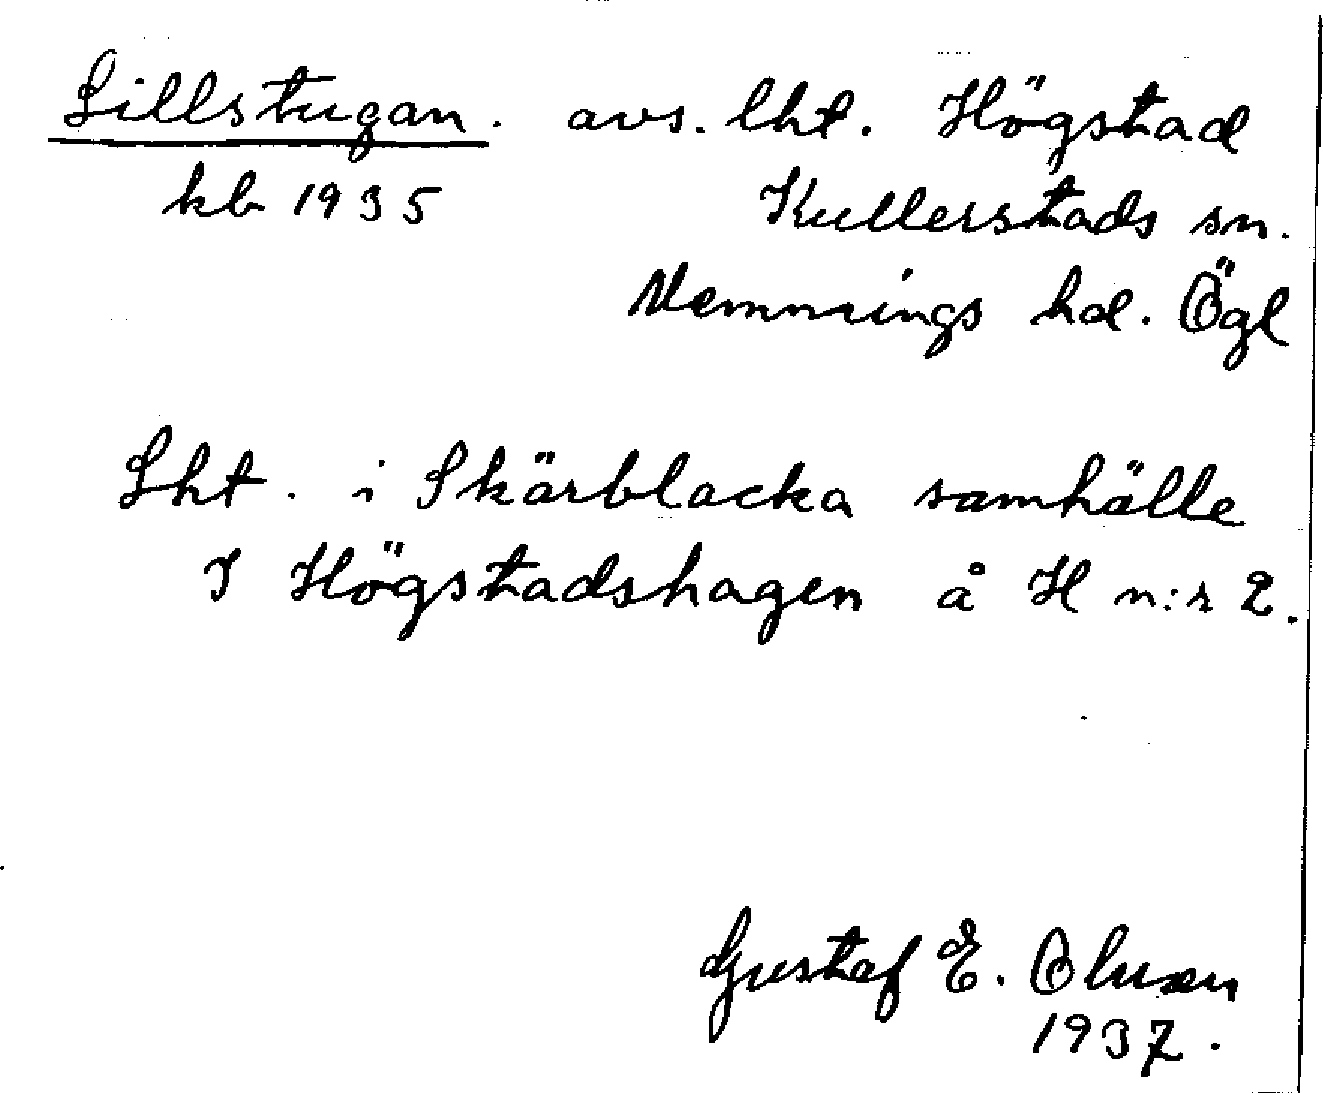 Lillstugan. avs. lht. Högstad
kb 1935 Kullerstads sn.
Memmings hd. Ögl
Lht. i Skärblacka samhälle
I Högstadshagen å H n:r 2.
Gustaf E. Oluson
1937.